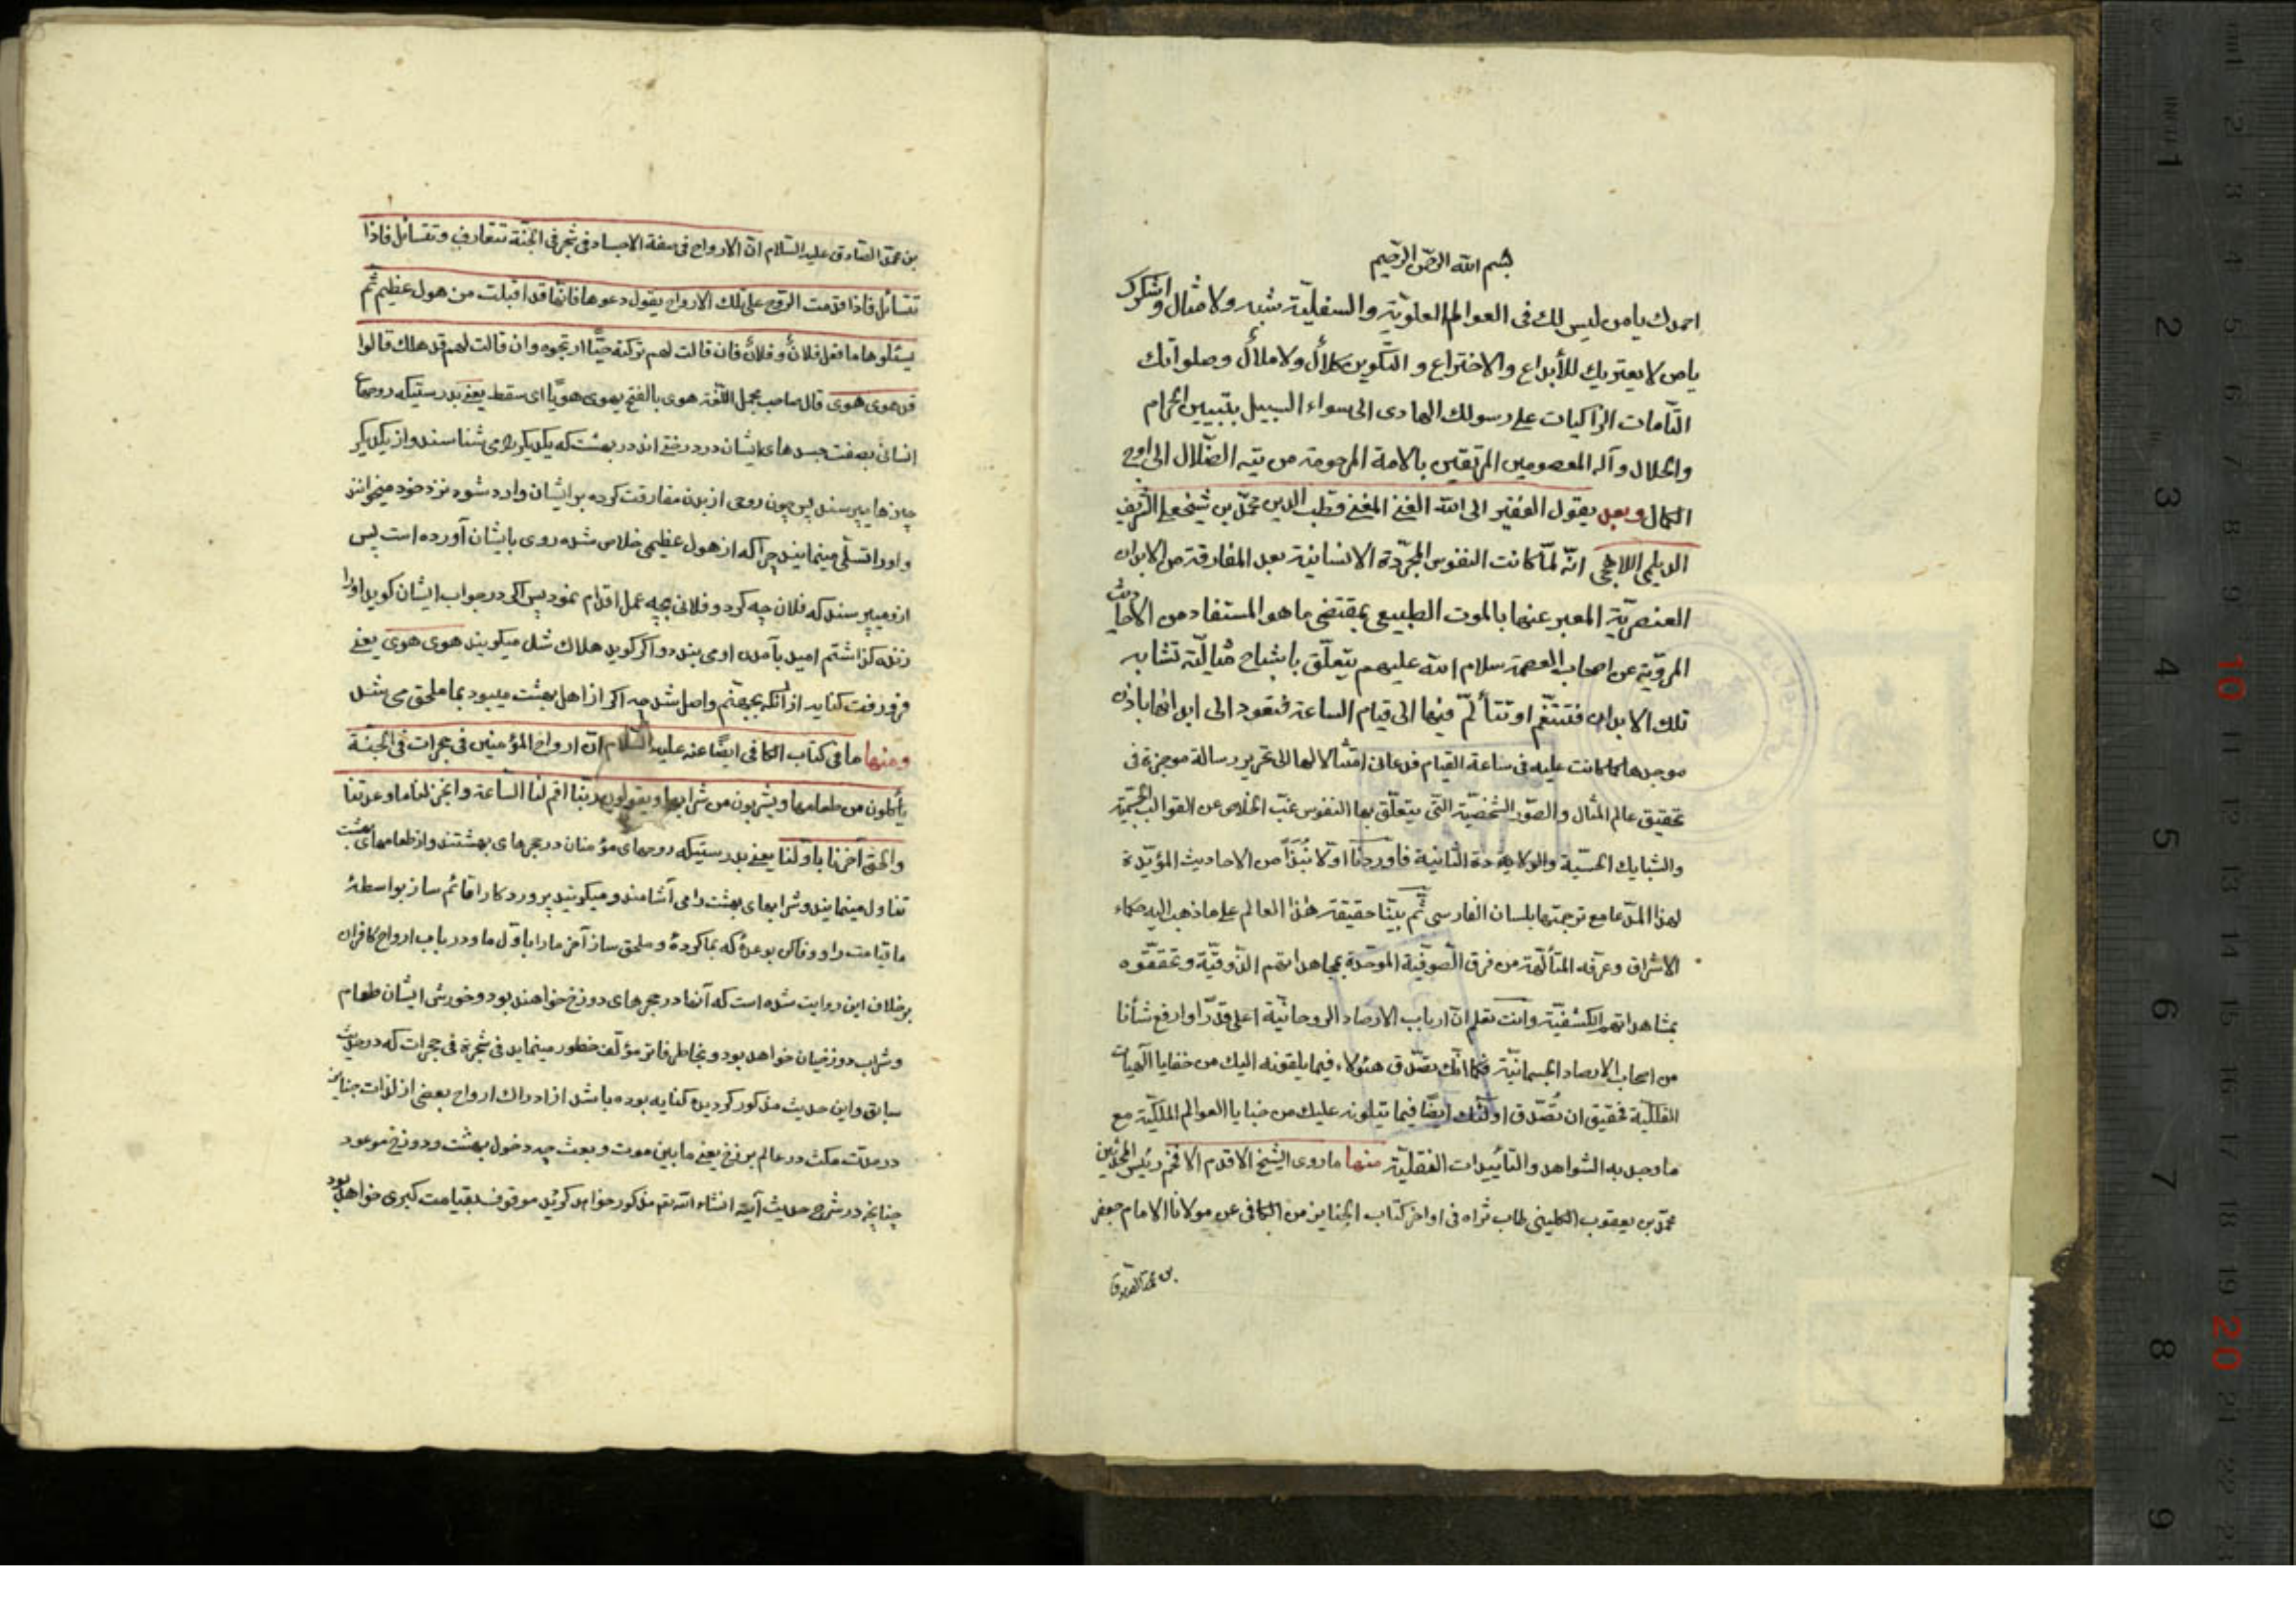 بسم الله الرحمن الرحيم
احمدك يا من ليس لك فى العوالم العلويّة والسفليّة شبه ولا مثال واشكرك
يا من لا يعتريك للأبداع والاختراع و التكوين كلال ولا ملال وصلواتك
التّامات الزاكيات على رسولك الهادى الى سواء السبيل بتبيين الحرام
والحلال وآله المعصومين المرتقين بالامة المرحومة من تيه الضّلال الى اوج
الكمال وبعد يقول الفقير الى الله الغنى المغنى قطب الدين محمّد بن شيخعلى الشريف
الديلمى اللاهجى انّه لمّا كانت النفوس المجرّدة الانسانية بعد المفارقة من الابدان
العنصريّة المعبر عنها بالموت الطبيعى بمقتضى ما هو المستفاد من الاحاديث
المرويّة عن اصحاب العصمة سلام الله عليهم يتعلّق باشباح مثاليّة تشابه
تلك الابدان فتتنعّم او تتألّم فيها الى قيام الساعة فتعود الى ابدانها باذن
موجدها كما كانت عليه فى ساعة القيام فدعانى امتثالا لها الى تحرير رسالة موجزة فى
تحقيق عالم المثال والصّور الشخصيّة التى يتعلّق بها النفوس غبّ الخلاص عن القوالب الجسميّة
والشبايك الحسيّة والولادة الثانية فاوردنا اوّلا نُبَذاً من الاحاديث المؤيّدة
لهذا المدّعا مع ترجمتها بلسان الفارسى ثّم بيّنا حقيقة هذا العالم على ما ذهب اليه حكماء
الاشراق وعرّفه المتألّهة من فرق الصّوفيّة الموحّدة بمجاهداتهم الذّوقيّة وتحقّقوه
بمشاهداتهم الكشفيّة وانت تعلم انّ ارباب الارصاد الروحانيّة اعلى قدراً وارفع شأنا
من اصحاب الارصاد الجسمانيّة فكما انّك تصدّق هؤلاء فيما يلقونه اليك من خفايا الهيات
الفلكيّة فحقيق ان تُصدّق اولئك ايضًا فيما يتلونه عليك من خبايا العوالم الملكيّة مع
ما وجد به الشواهد والتأييدات النقليّة منها ما روى الشيخ الاقدم الافخم رئيس المحدّثين
محمّد بن يعقوب الكلينى طاب ثراه فى اواخر كتاب الجنايز من الكافى عن مولانا الامام جعفر
بن محمّد الصادق
بن محمّد الصّادق عليه السّلام انّ الارواح فى صفة الاجساد فى شجر فى الجنّة تتعارف وتتسائل فاذا
تتسائل فاذا قدمت الروح على تلك الارواح يقول دعوها فانّها قد اقبلت من هول عظيم ثّم
يسئلوها ما فعل فلانٌ و فلانٌ فان قالت لهم تركته حيًّا ارتجوه وان قالت لهم قد هلك قالوا
قد هوى هوى قال صاحب مجمل اللّغة هوى بالفتح يهوى هويًّا اى سقط يعنى بدرستيكه روحهاى
انسانى بصفت جسدهاى ايشان در درختى اند در بهشت كه يكديكر را مى شناسند و از يكديكر
چيزها ميپرسند پس چون روحى از بدن مفارقت كرده بر ايشان وارد شود نزد خود ميخوانند
و اورا تسلّى مينمايند چراكه از هول عظيمى خلاص شده روى بايشان آورده است پس
ازو ميپرسند كه فلان چه كرد و فلانى بچه عمل اقدام نمود پس اكر در جواب ايشان كويد اورا
زنده كذاشتم اميد بآمدن او مى بندد و اكر كويد هلاك شد ميكويند هوى هوى يعنى
فرو رفت كنايه از آنكه بجهنّم واصل شد چه اكر از اهل بهشت ميبود بما ملحق مى شد
ومنها ما فى كتاب الكافى ايضًا عنه عليه السّلام انّ ارواح المؤمنين فى حجرات فى الجنّة
يأكلون من طعامها ويشربون من شرابها ويقولون ربّنا اقم لنا السّاعة وانجز لنا ما وعدتنا
والحق آخرنا باوّلنا يعنى بدرستيكه روحهاى مؤمنان در حجرهاى بهشتند و از طعامهاى بهشت
تناول مينمايند و شرابهاى بهشت را مى آشامند و ميكويند پروردكارا قائم ساز بواسطهٔ
ما قيامت را و وفا كن بوعدهٔ كه بما كردهٔ و ملحق ساز آخر ما را باوّل ما و در باب ارواح كافران
برخلاف اين روايت شده است كه آنها در حجرهاى دوزخ خواهند بود و خورش ايشان طعام
و شراب دوزخيان خواهد بود و بخاطر فاتر مؤلّف خطور مينمايد فى شجرة فى حجرات كه در حديث
سابق و اين حديث مذكور كرديده كنايه بوده باشد از ادراك ارواح بعضى از لذات جنانى
در مدّت مكث در عالم برزخ يعنى ما بين موت و بعث چه دخول بهشت و دوزخ موعود
چنانچه در شرح حديث آتيه انشاء الله تع مذكور خواهد كرديد موقوف بقيامت كبرى خواهد بود